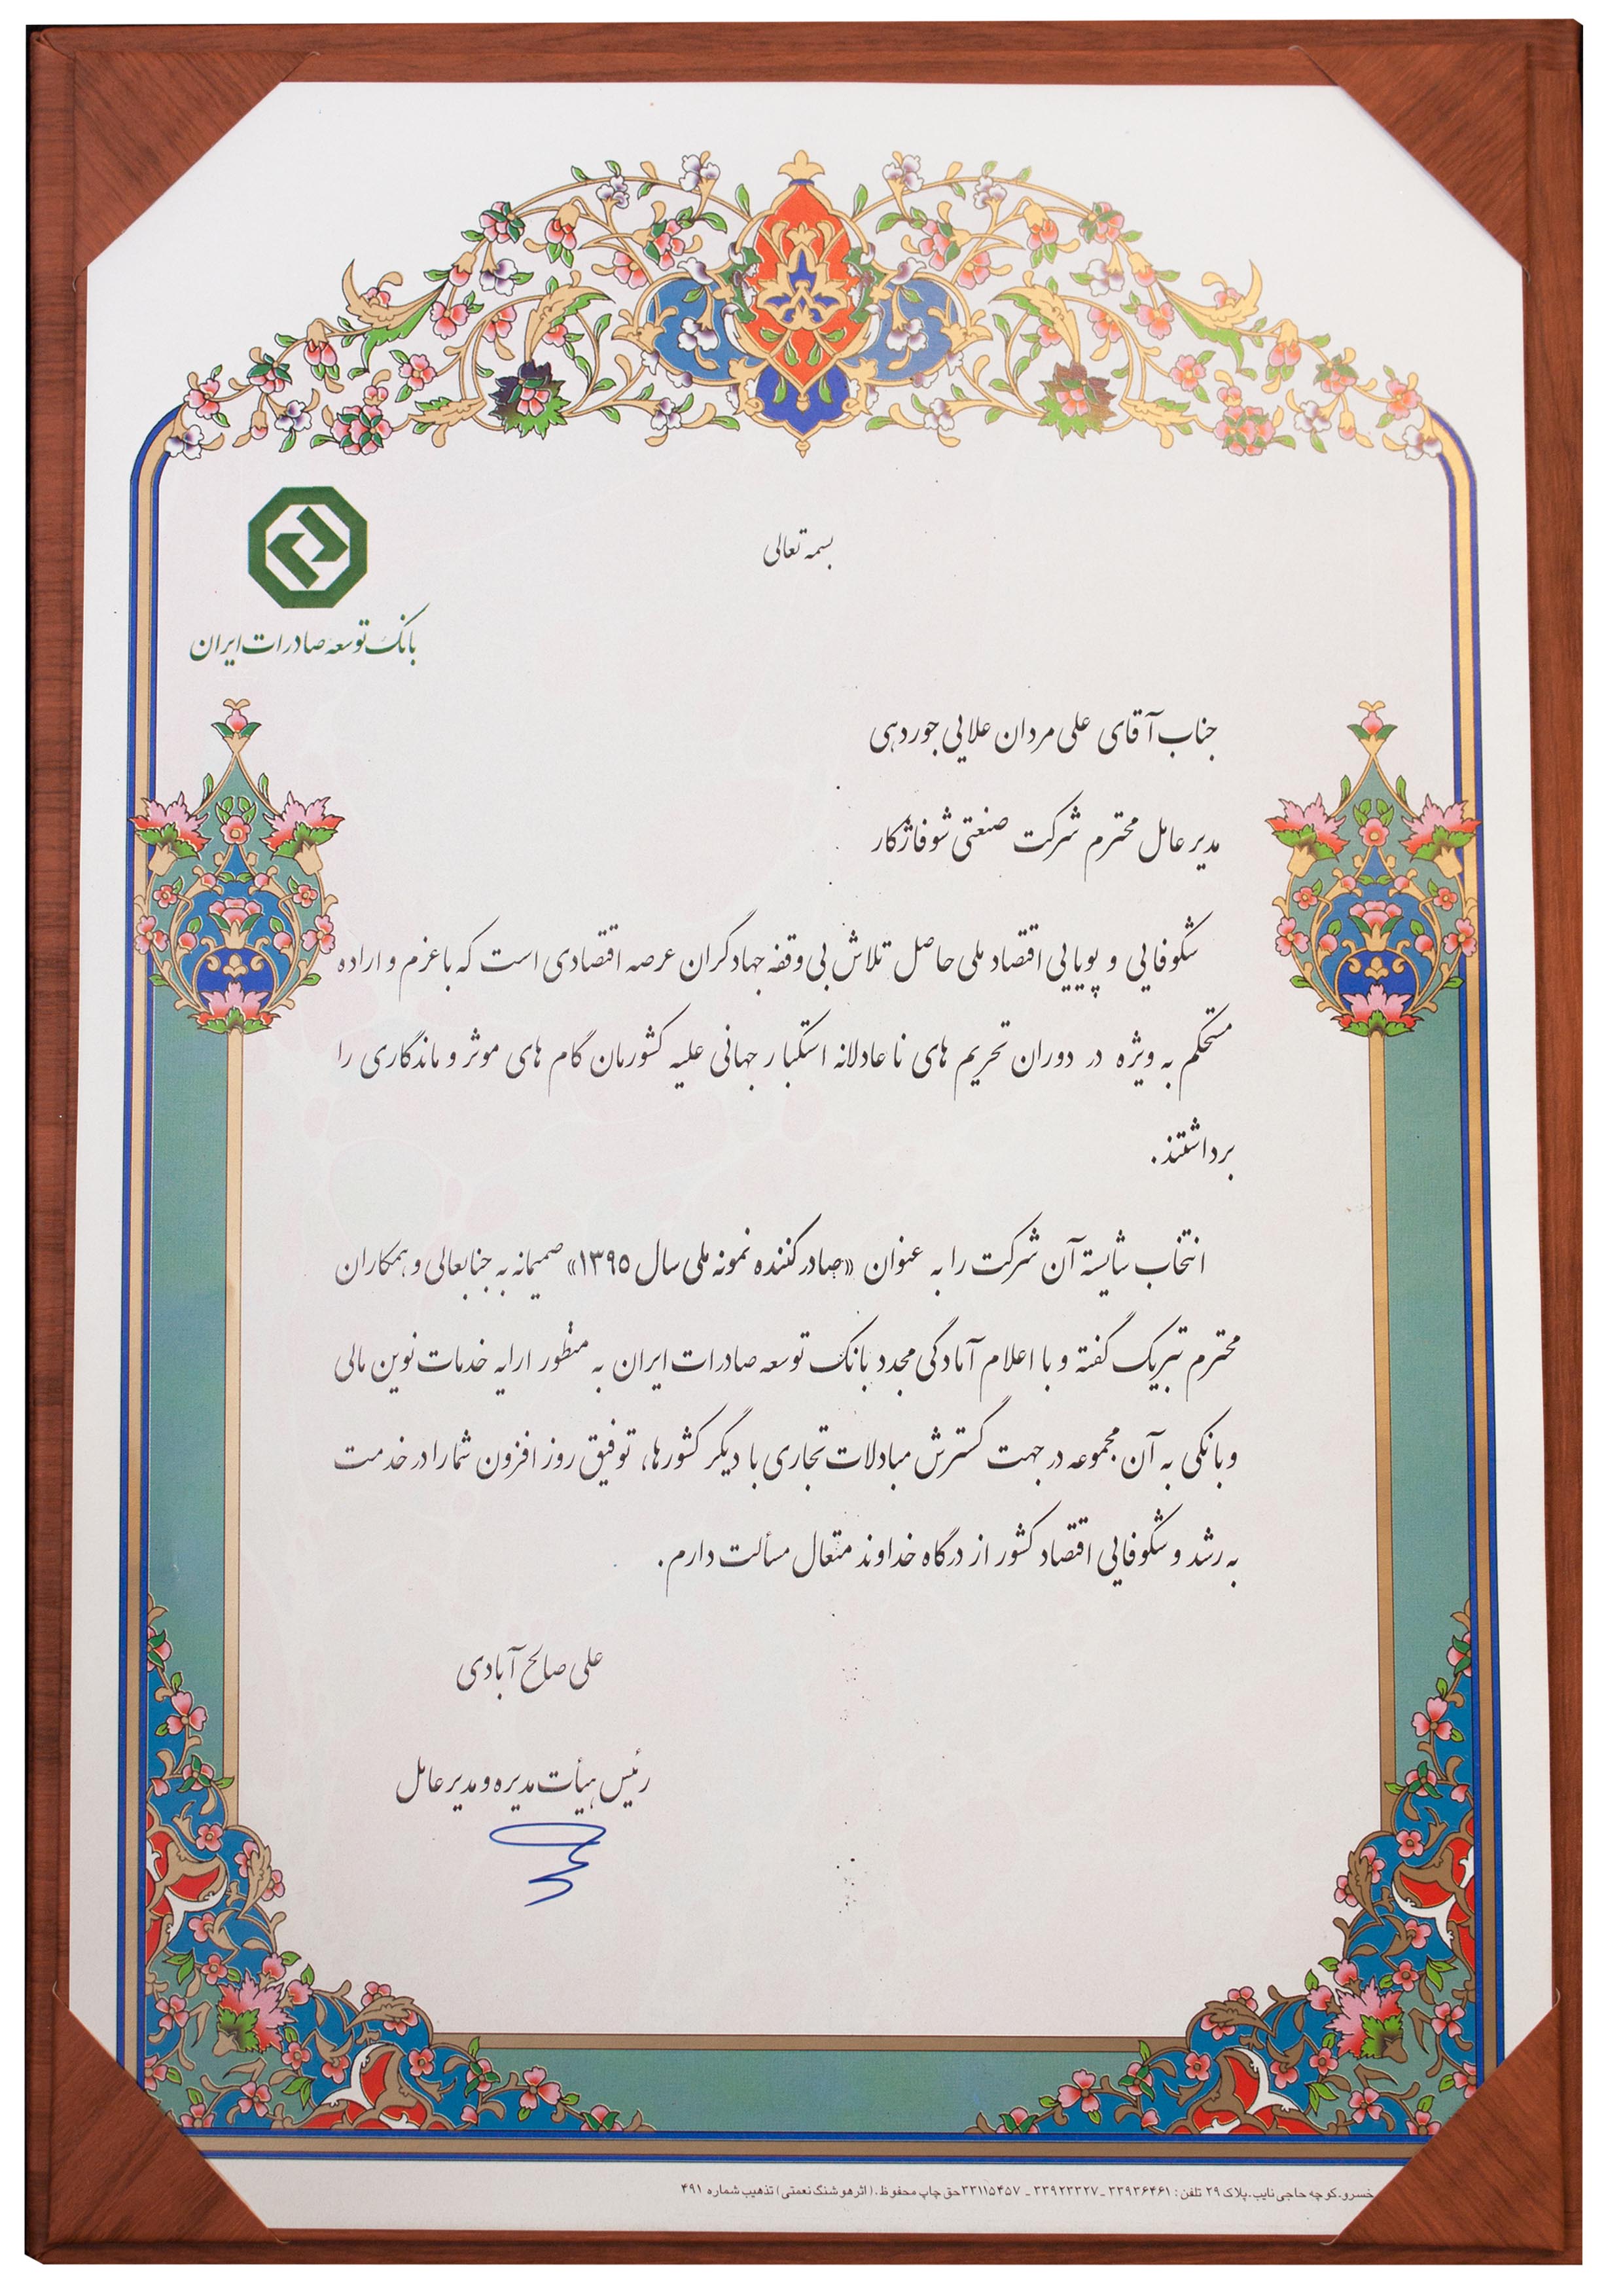 بسمه تعالی
بانک توسعه صادرات ایران
جناب آقای علی مردان علایی جوردهی
مدیر عامل محترم شرکت صنعتی شوفاژکار
شکوفایی و پویایی اقتصاد ملی حاصل تلاش بی وقفه جهادگران عرصه اقتصادی است که با عزم و اراده
مستحکم به ویژه در دوران تحریم های ناعادلانه استکبار جهانی علیه کشورمان گام های موثر و ماندگاری را
برداشتند.
انتخاب شایسته آن شرکت را به عنوان «صادر کننده نمونه ملی سال ۱۳۹۵» صمیمانه به جنابعالی و همکاران
محترم تبریک گفته و با اعلام آمادگی مجدد بانک توسعه صادرات ایران به منظور ارایه خدمات نوین مالی
و بانکی به آن مجموعه در جهت گسترش مبادلات تجاری با دیگر کشورها، توفیق روز افزون شما را در خدمت
به رشد و شکوفایی اقتصاد کشور از درگاه خداوند متعال مسألت دارم.
علی صالح آبادی
رئیس هیأت مدیره و مدیر عامل
خسرو.کوچه حاجی نایب.پلاک ۲۹ تلفن: ۳۳۹۳۶۴۶۱ _ ۳۳۹۲۳۳۲۷ _ ۳۳۱۱۵۴۵۷ حق چاپ محفوظ.(اثر هوشنگ نعمتی) تذهیب شماره ۴۹۱